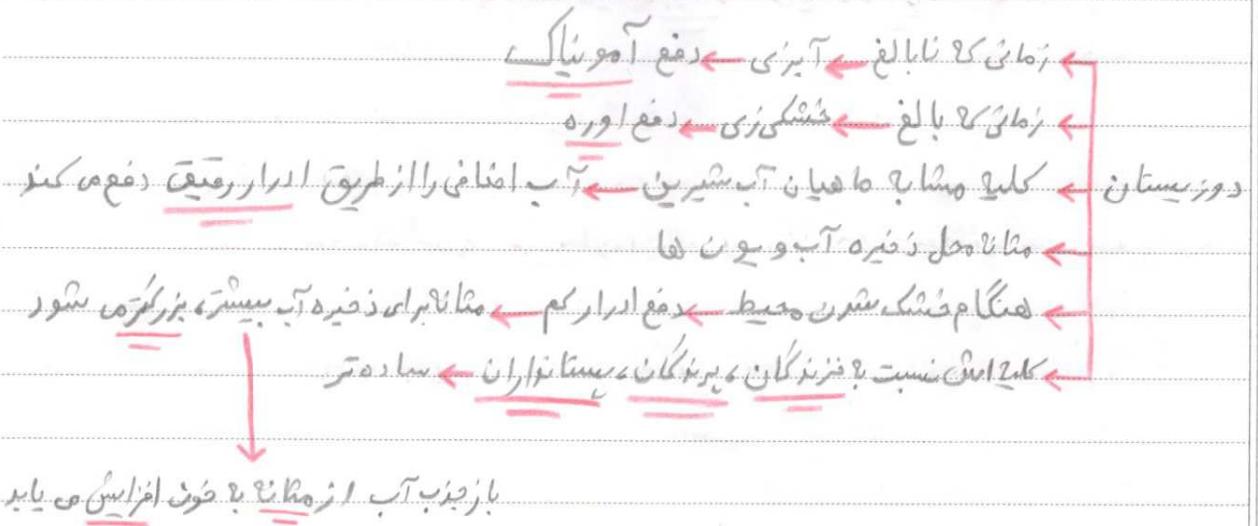 زمانی که نابالغ ← آبزی ← دفع آمونیاک
زمانی که بالغ ← خشکی زی ← دفع اوره
دوزیستان ← کلیه مشابه ماهیان آب شیرین ← آب اضافی را از طریق ادرار رقیق دفع می کند
مثانه محل ذخیره آب و یون ها
هنگام خشک شدن محیط ← دفع ادرار کم ← مثانه برای ذخیره آب بیشتر، بزرگتر می شود
کلیه اش نسبت به خزندگان، پرندگان، پستانداران ← ساده تر
بازجذب آب از مثانه به خون افزایش می یابد